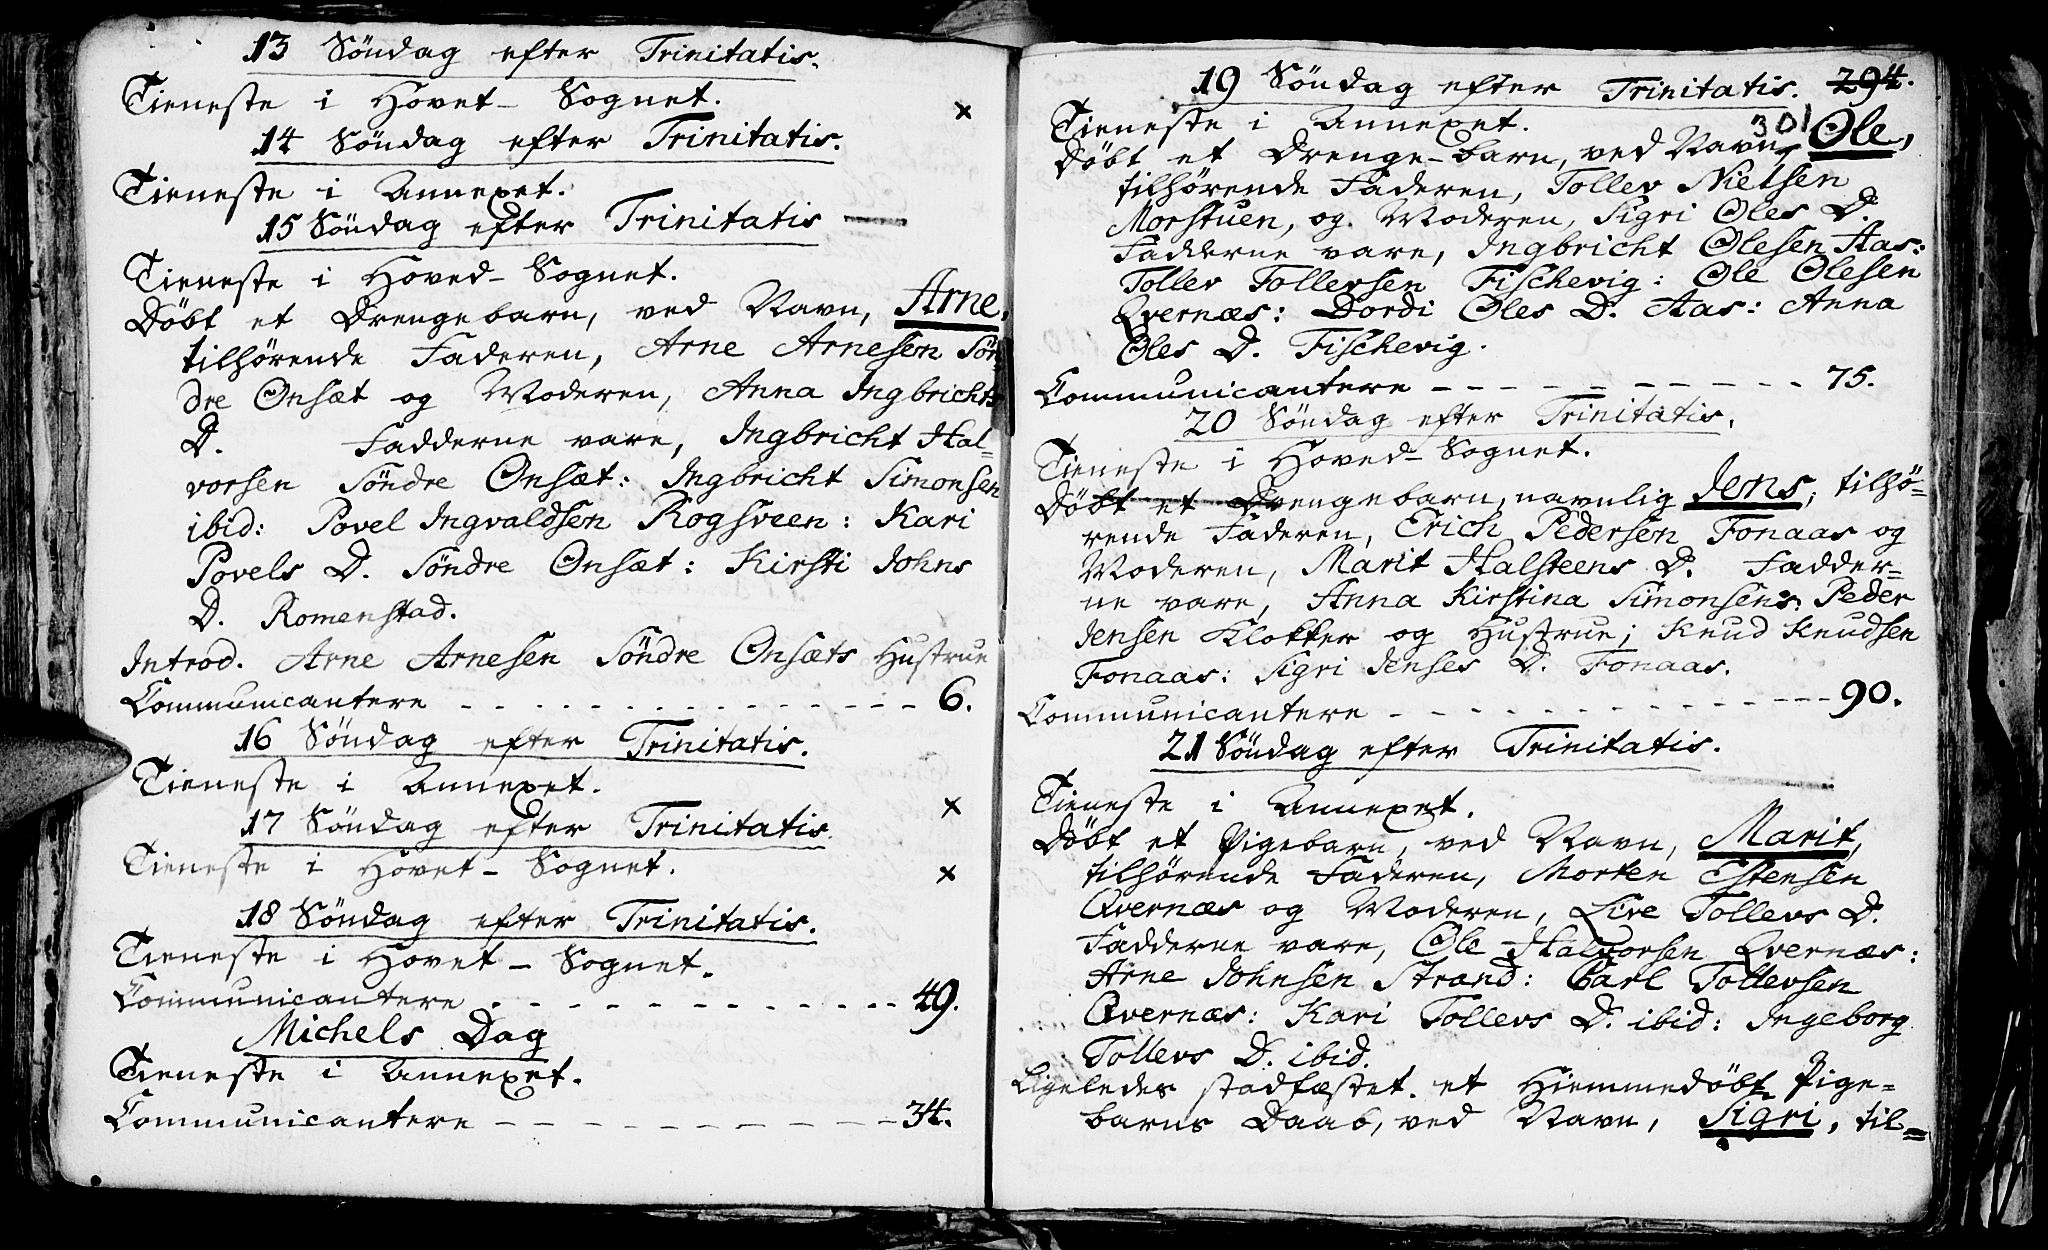 13 Söndag efter Trinitatis.
Tieneste i Hovet-Sognet.
14 Söndag efter Trinitatis.
Tieneste i Annexet.
15 Söndag efter Trinitatis
Tieneste i Hoved-Sognet.
Döbt et Drengebarn, ved Navn, Arne,
tilhörende Faderen, Arne Arnesen Sön-
dre Onsæt og Moderen, Anna Ingbrichts
D. Fadderne vare, Ingbricht Hal-
vorsen Söndre Onsæt: Ingbricht Simonsen
ibid: Povel Ingvaldsen Rogsveen: Kari
Povels D. Söndre Onsæt: Kirsti Johns
D. Romenstad.
Introd. Arne Arnesen Söndre Onsæts Hustrue
Communicantere - - - - - - - - - - - - - - 6.
16 Söndag efter Trinitatis.
Tieneste i Annexet.
17 Söndag efter Trinitatis.
Tieneste i Hovet-Sognet.
18 Söndag efter Trinitatis.
Tieneste i Hovet-Sognet.
Communicantere - - - - - - - - - - - 49.
Michels Dag
Tieneste i Annexet.
Communicantere - - - - - - - - - - - 34.
19 Söndag efter Trinitatis. 294.
301
Tieneste i Annexet.
Döbt et Drenge-barn, ved Navn, Ole,
tilhörende Faderen, Tollev Nielsen
Morstuen, og Moderen, Sigri Oles D.
Fadderne vare, Ingbricht Olesen Aas:
Tollev Tollevsen Fischevig: Ole Olesen
Qvernæs: Dordi Oles D. Aas: Anna
Oles D. Fischevig.
Communicantere - - - - - - - - - - - 75.
20 Söndag efter Trinitatis.
Tieneste i Hoved-Sognet.
Döbt et Drengebarn, navnlig Jens, tilhö-
rende Faderen, Erich Pedersen Fonaas og
Moderen, Marit Halsteens D. Fadder-
ne vare, Anna Kirstina Simonsens: Peder
Jensen Klokker og Hustrue; Knud Knudsen
Fonaas: Sigri Jenses D. Fonaas.
Communicantere - - - - - - - - - - - - - 90.
21 Söndag efter Trinitatis.
Tieneste i Annexet.
Döbt et Pigebarn, ved Navn, Marit,
tilhörende Faderen, Morten Estensen
Qvernæs og Moderen, Live Tollevs D.
Fadderne vare, Ole Halvorsen Qvernæs:
Arne Johnsen Strand: Carl Tollevsen
Qvernæs: Kari Tollevs D. ibid: Ingeborg
Tollevs D. ibid.
Ligeledes stadfæstet et Hiemmedöbt Pige-
barns Daab, ved Navn, Sigri, til-